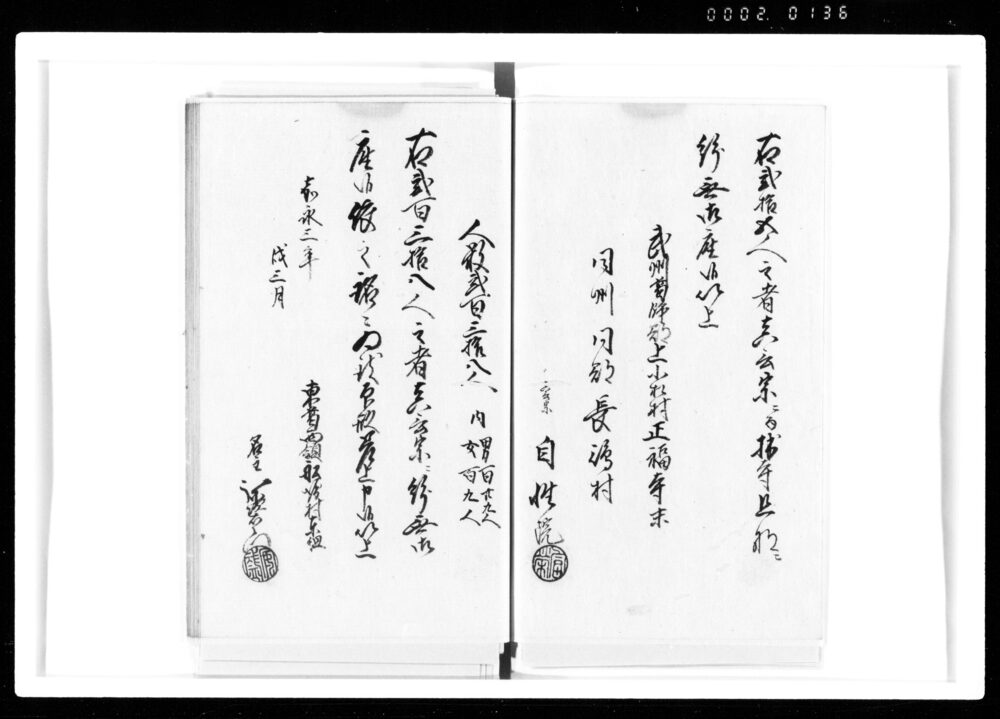 0002 0136
右弐拾五人之者真言宗ニ而拙寺旦那ニ
紛無御座候以上
武州葛飾郡上小松村正福寺末
同州同郡長嶋村
真言宗 自性院
人数弐百三拾八人 内
男百廿九人
女百九人
右弐百三拾八人之者真言宗ニ紛無御
座候依之銘々判形差上申候以上
嘉永三年
戌三月
東葛西領
名主